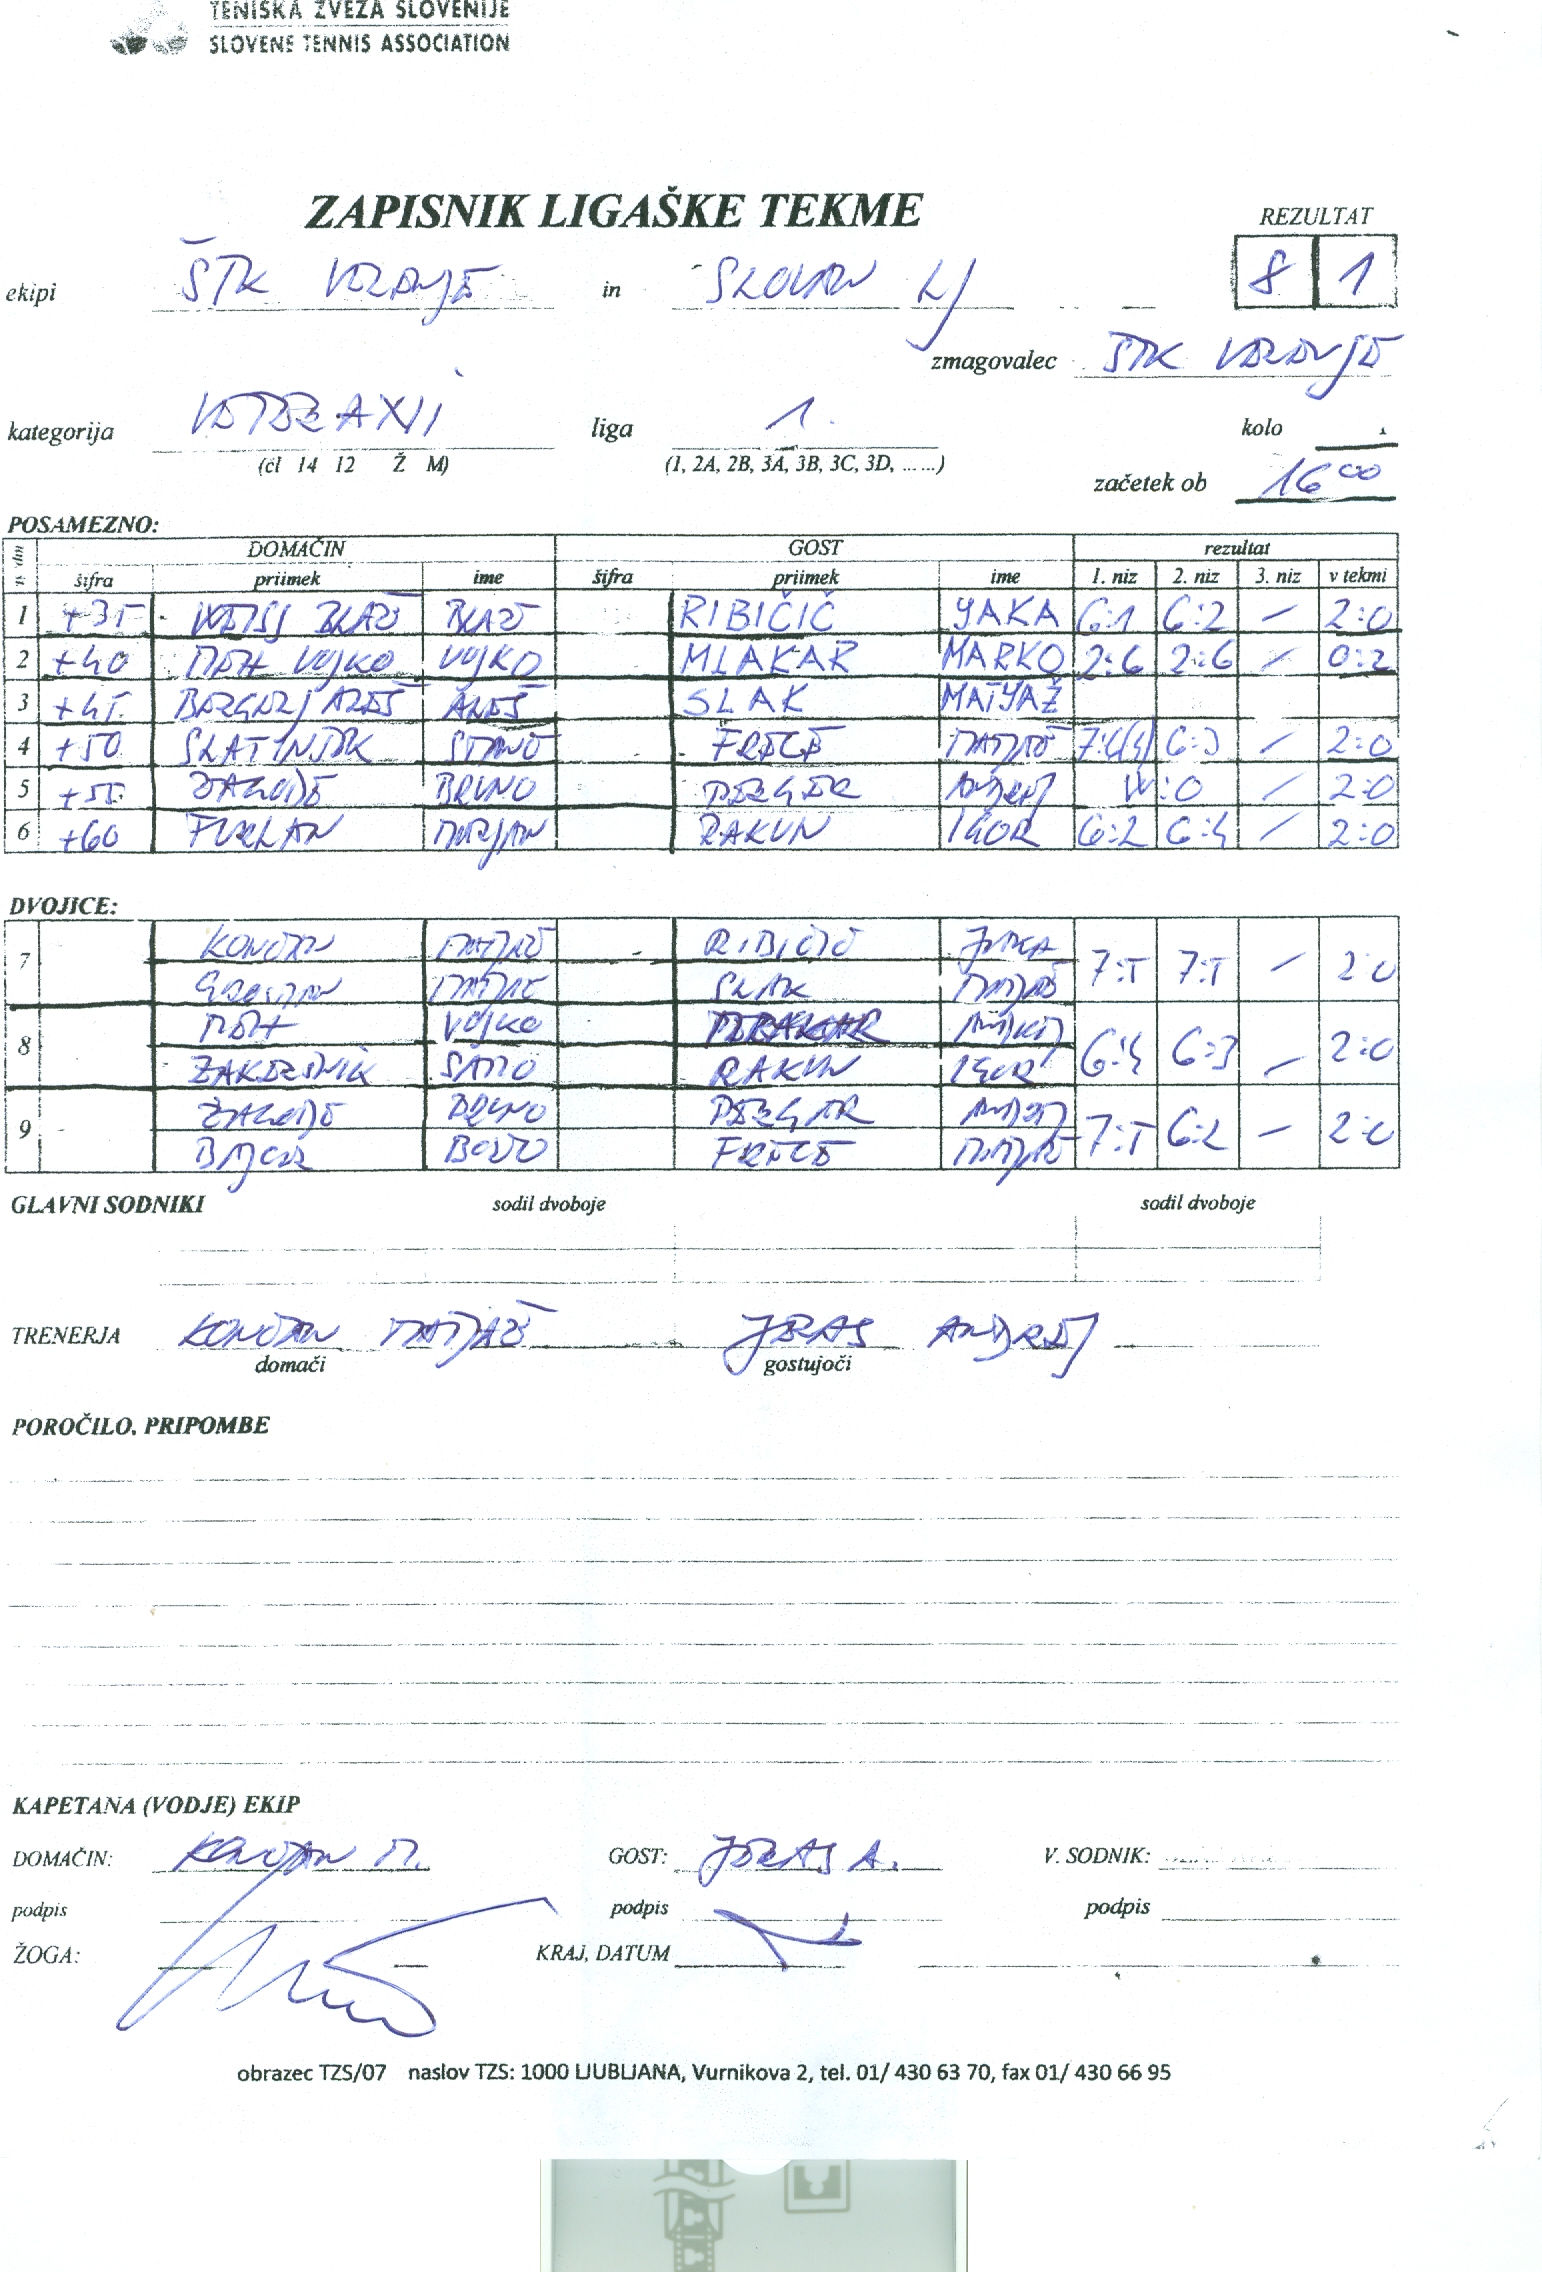 TENISKA ZVEZA SLOVENIJE
SLOVENE TENNIS ASSOCIATION
ZAPISNIK LIGAŠKE TEKME
REZULTAT
ekipi ŠTK in SLOVAN LJ 8 1
zmagovalec ŠTK
kategorija liga 1. kolo 1
(čl 14 12 Ž M) (1, 2A, 2B, 3A, 3B, 3C, 3D, ......)
začetek ob 16 00
POSAMEZNO:
DOMAČIN GOST rezultat
šifra priimek ime šifra priimek ime 1. niz 2. niz 3. niz v tekmi
1 +35 BLAŽ BLAŽ RIBIČIČ YAKA 6:1 6:2 / 2:0
2 +40 VOJKO VOJKO MLAKAR MARKO 2:6 2:6 / 0:2
3 +45 ALEŠ ALEŠ SLAK MATYAŽ
4 +50 SLATINŠEK FREČE MATJAŽ 7:6(4) 6:3 / 2:0
5 +55 BRUNO PERGER ANDREJ W:0 / 2:0
6 +60 FURLAN MARJAN RAKUN IGOR 6:2 6:4 / 2:0
DVOJICE:
7 KONČAN MATJAŽ RIBIČIČ JAKA 7:5 7:5 / 2:0
MATJAŽ SLAK MATJAŽ
8 VOJKO 6:4 6:3 / 2:0
ŽAKELŠNIK SAŠO RAKUN IGOR
9 BRUNO PERGER ANDREJ 7:5 6:2 / 2:0
FREČE MATJAŽ
GLAVNI SODNIKI sodil dvoboje sodil dvoboje
TRENERJA KONČAN MATJAŽ JERAS ANDREJ
domači gostujoči
POROČILO, PRIPOMBE
KAPETANA (VODJE) EKIP
DOMAČIN: KONČAN M. GOST: JERAS A. V. SODNIK:
podpis podpis podpis
ŽOGA: KRAJ, DATUM
obrazec TZS/07 naslov TZS: 1000 LJUBLJANA, Vurnikova 2, tel. 01/ 430 63 70, fax 01/ 430 66 95